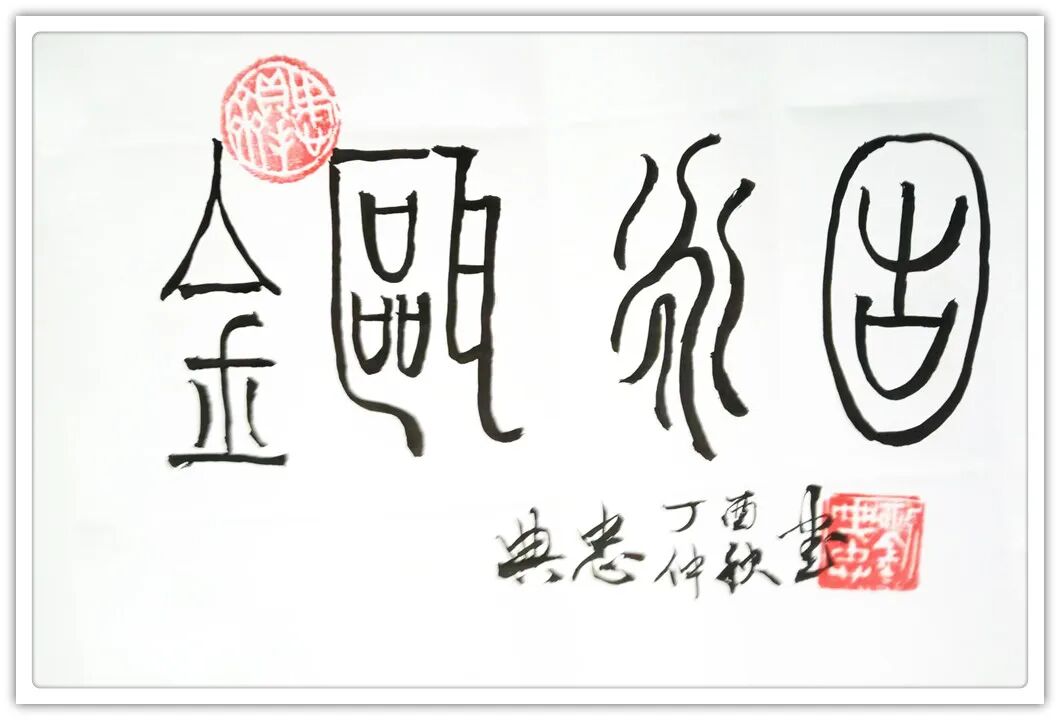 金甌永固
典忠丁酉仲秋书